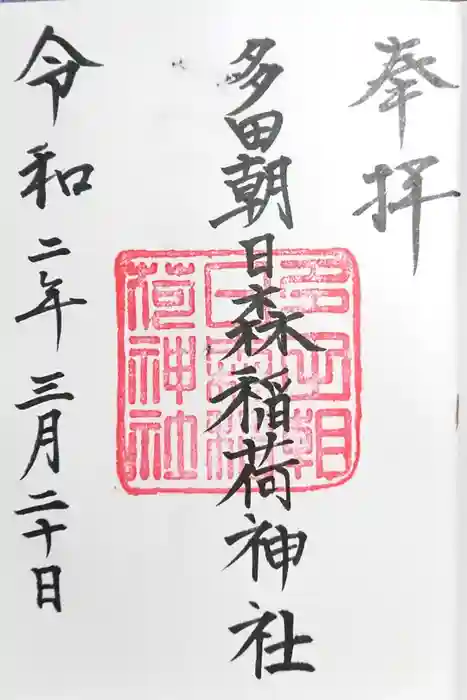 奉拝
多田朝日森稲荷神社
令和二年三月二十日
多田朝
日森稲
荷神社